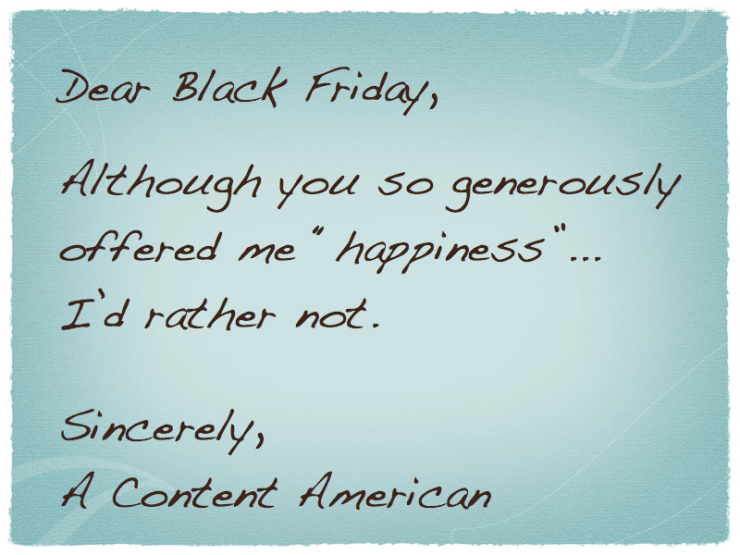 Dear Black Friday,
Although you so generously
offered me "happiness"...
I'd rather not.
Sincerely,
A Content American